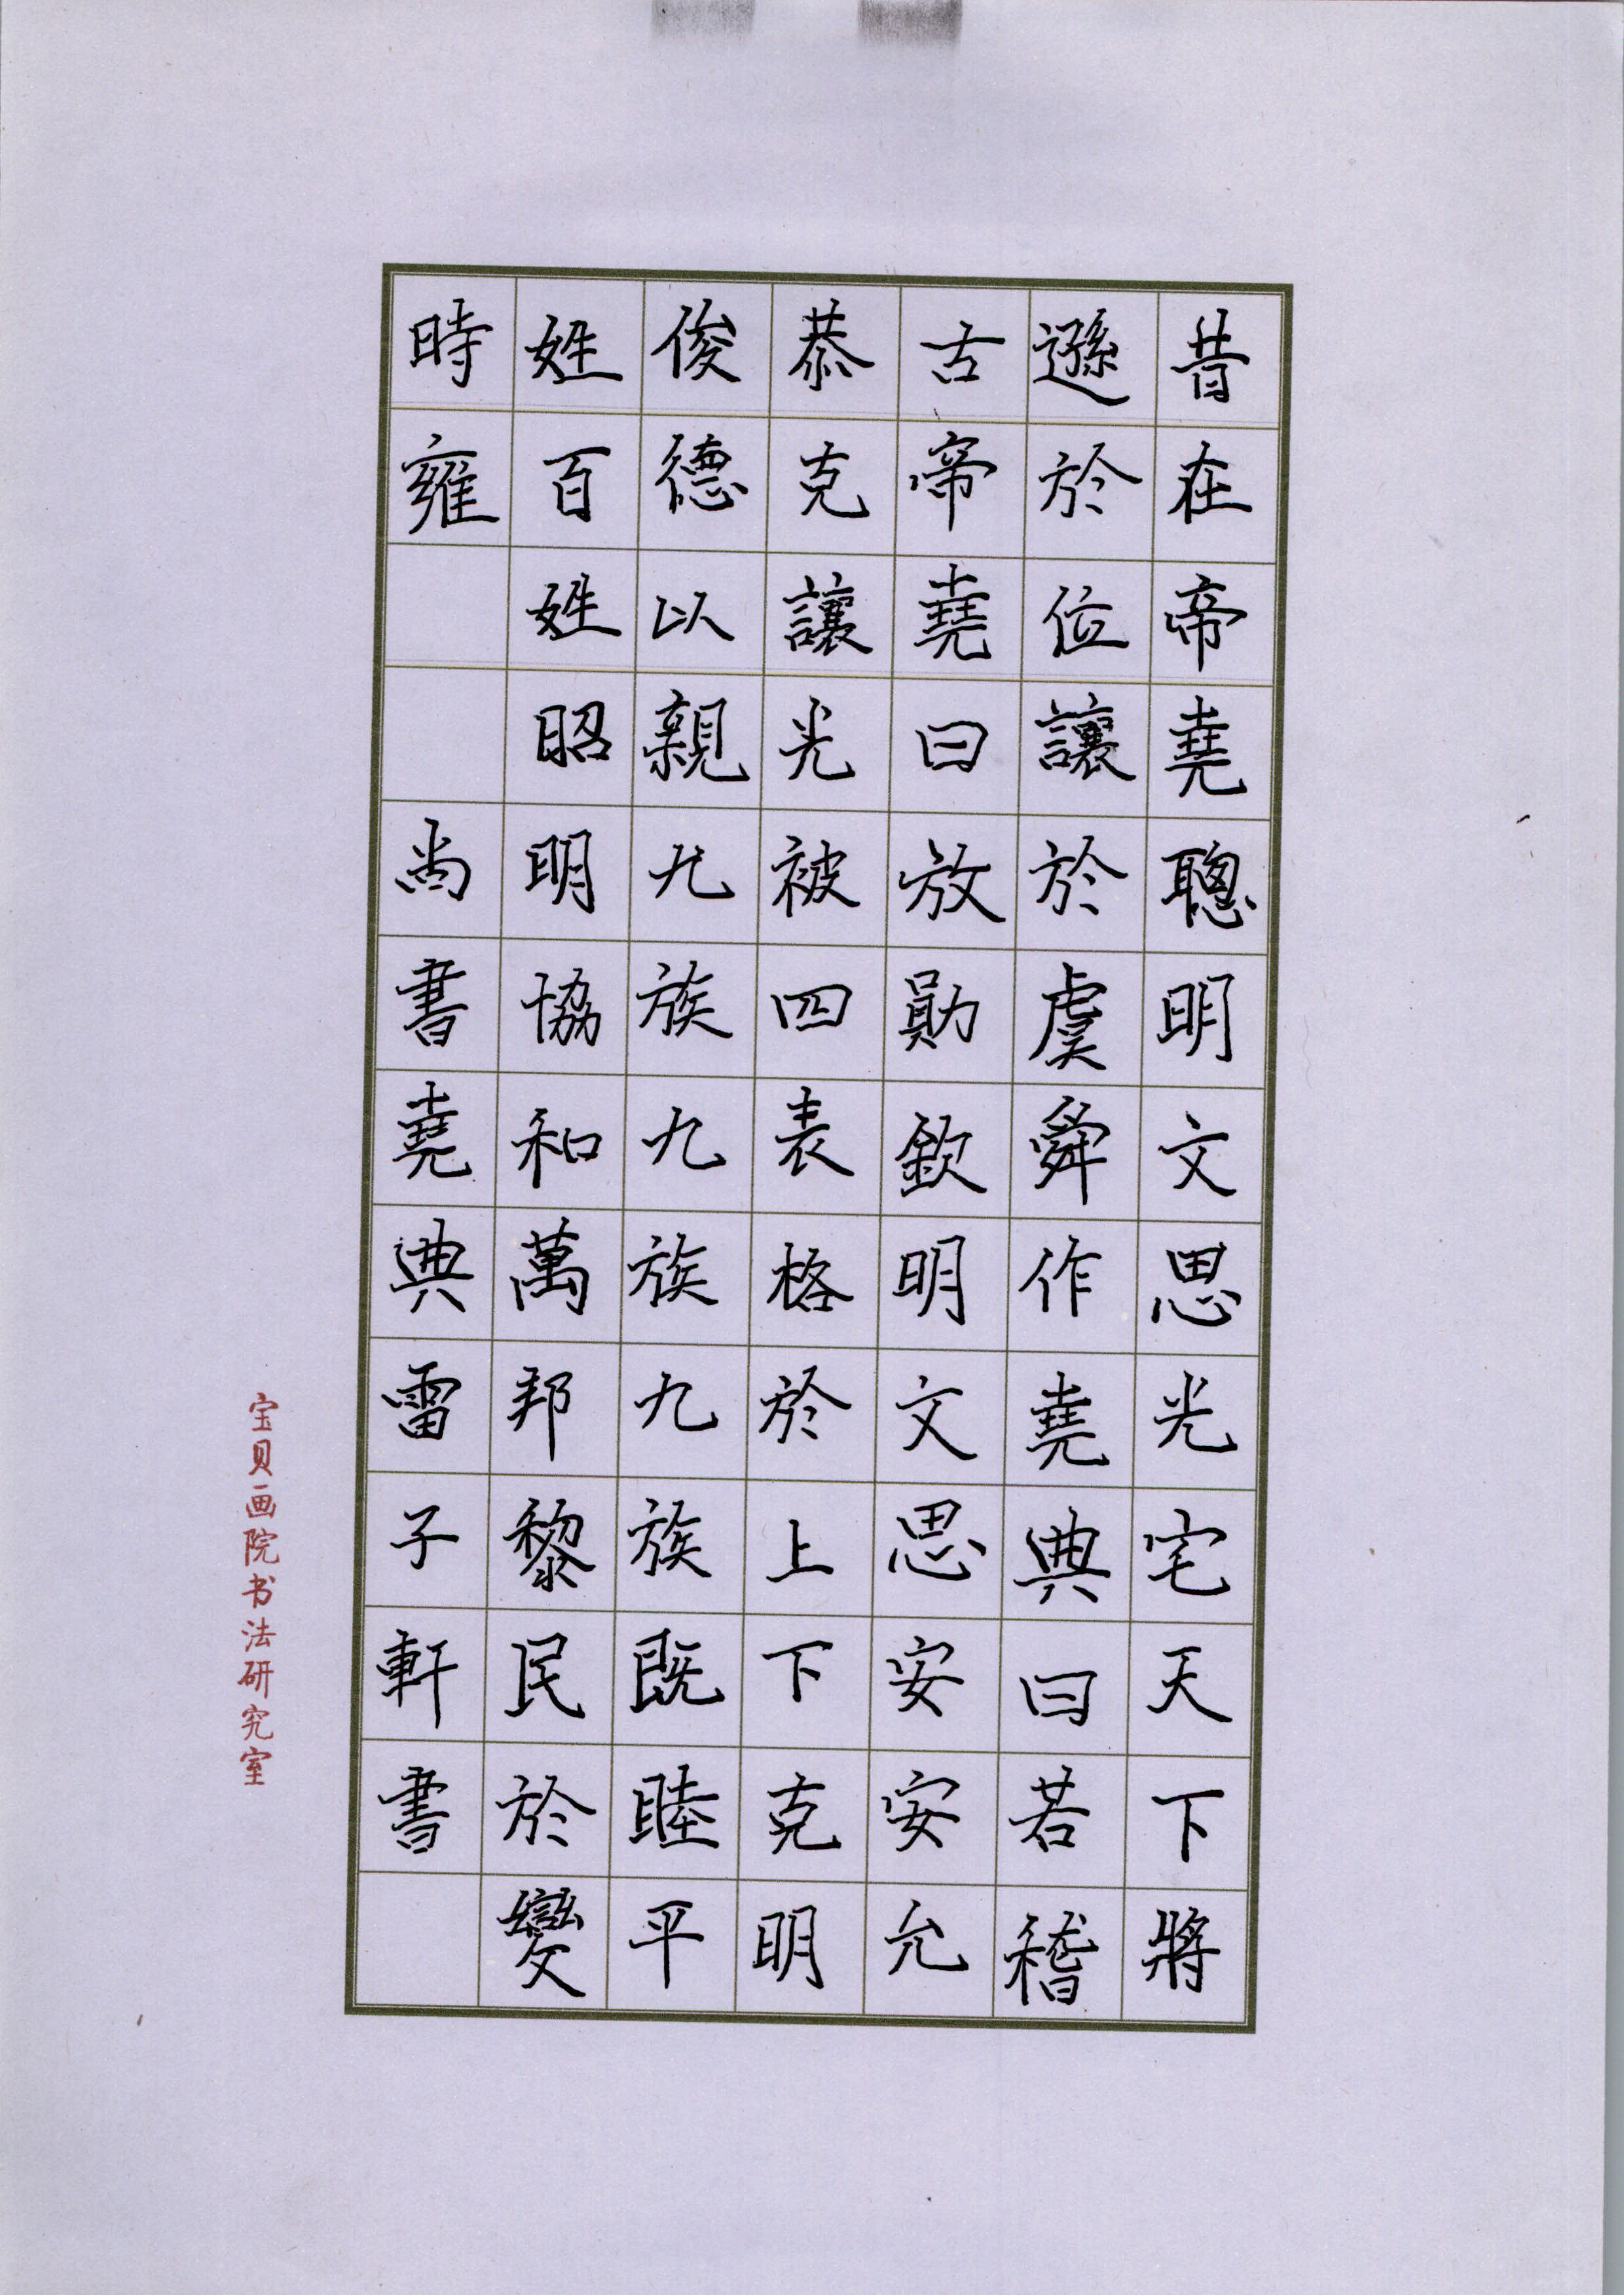 昔在帝堯聰明文思光宅天下將
遜於位讓於虞舜作堯典曰若稽
古帝堯曰放勛欽明文思安安允
恭克讓光被四表格於上下克明
俊德以親九族九族九族既睦平
姓百姓昭明協和萬邦黎民於變
時雍
尚書堯典雷子軒書
宝贝画院书法研究室